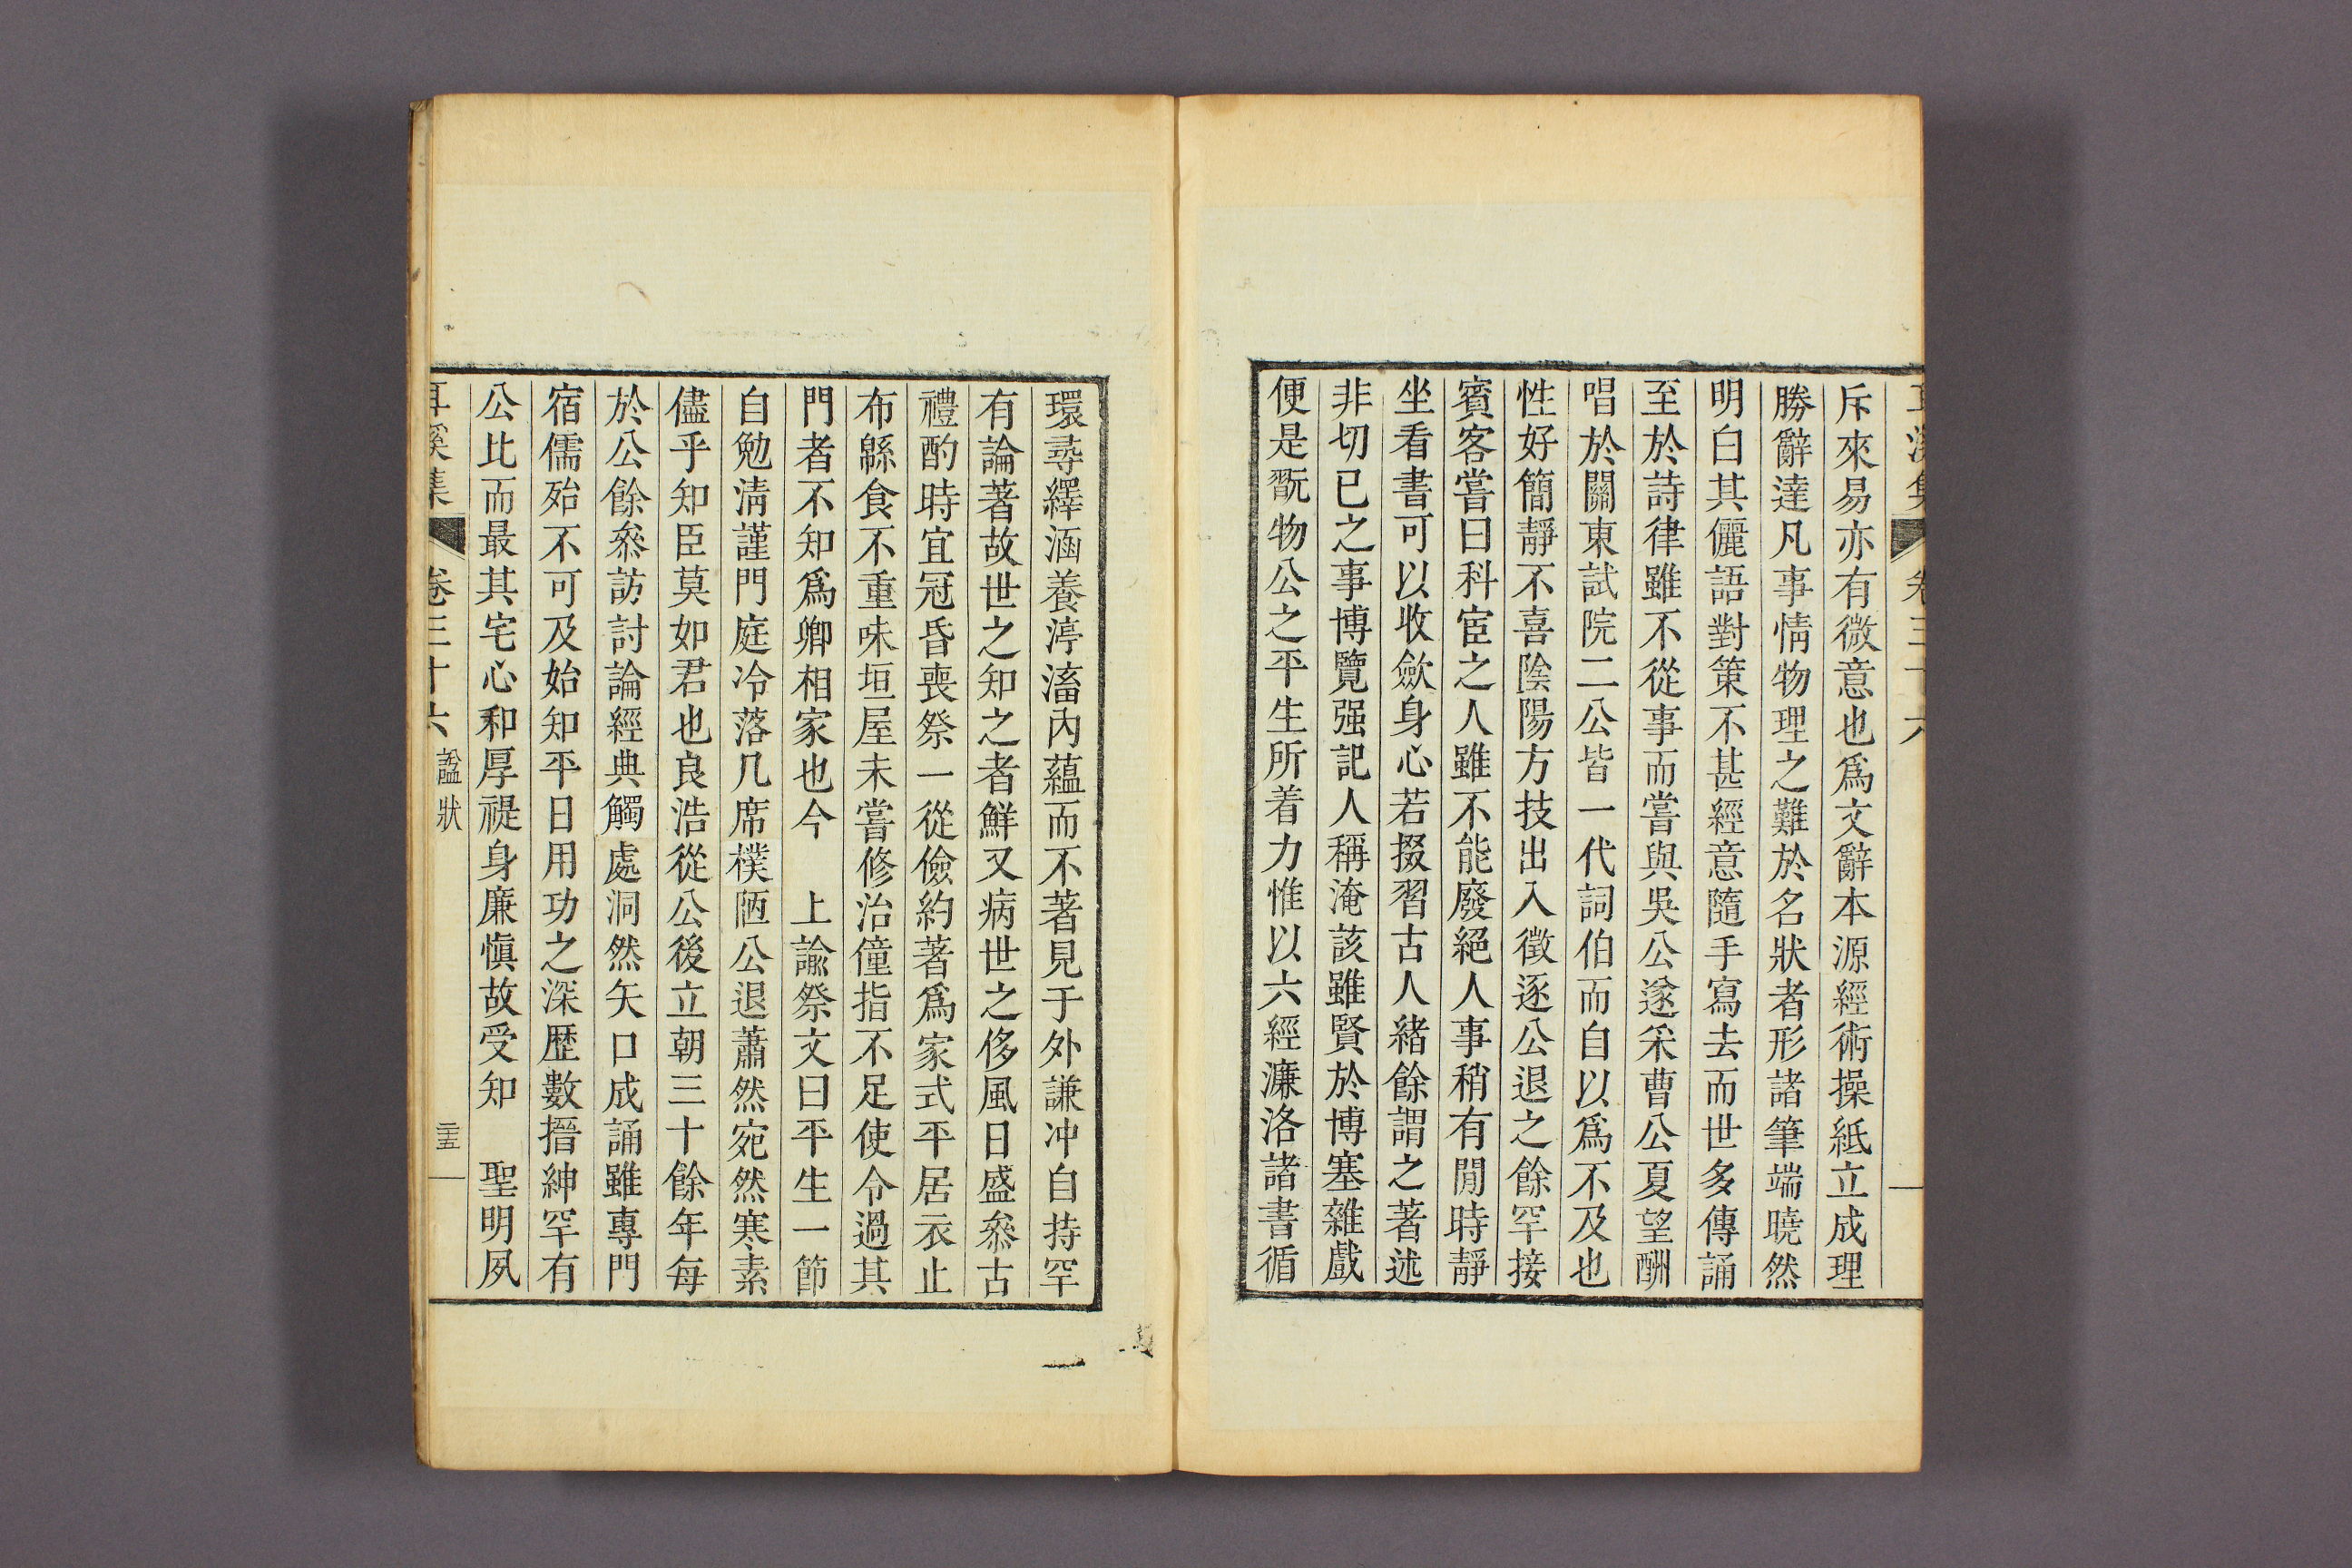 耳溪集 卷三十六
斥來易亦有微意也爲文辭本源經術操紙立成理
勝辭達凡事情物理之難於名狀者形諸筆端曉然
明白其儷語對策不甚經意隨手寫去而世多傳誦
至於詩律雖不從事而嘗與吳公遂采曹公夏望酬
唱於關東試院二公皆一代詞伯而自以爲不及也
性好簡靜不喜陰陽方技出入徵逐公退之餘罕接
賓客嘗曰科宦之人雖不能廢絕人事稍有閒時靜
坐看書可以收歛身心若掇習古人緖餘謂之著述
非切已之事博覽强記人稱淹該雖賢於博塞雜戲
便是翫物公之平生所着力惟以六經濂洛諸書循
環尋繹涵養渟滀內蘊而不著見于外謙冲自持罕
有論著故世之知之者鮮又病世之侈風日盛叅古
禮酌時宜冠昏喪祭一從儉約著爲家式平居衣止
布緜食不重味垣屋未嘗修治僮指不足使令過其
門者不知爲卿相家也今 上諭祭文曰平生一節
自勉淸謹門庭冷落几席樸陋公退蕭然宛然寒素
儘乎知臣莫如君也良浩從公後立朝三十餘年每
於公餘叅訪討論經典觸處洞然矢口成誦雖專門
宿儒殆不可及始知平日用功之深歷數搢紳罕有
公比而最其宅心和厚禔身廉愼故受知 聖明夙
耳溪集 卷三十六 諡狀 三五